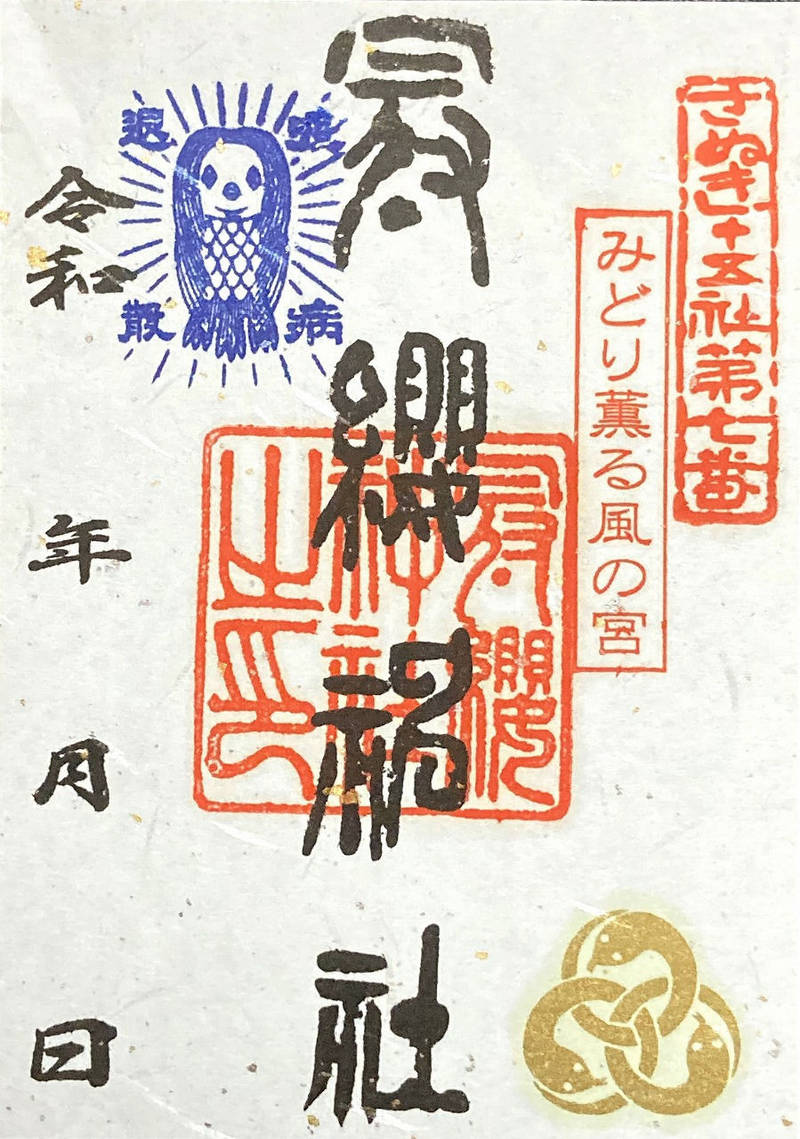 さぬき十五社第七番
みどり薫る風の宮
冠纓神社
冠纓
神社
之印
疫病
退散
令和 年 月 日